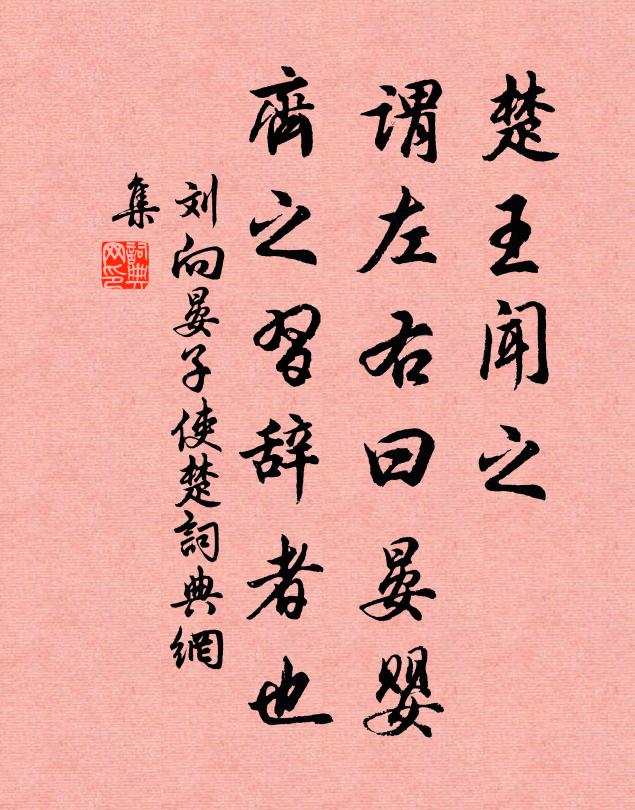 楚王闻之
谓左右曰晏婴
齊之習辞者也
刘向晏子使楚詞典網
集
詞典
网印